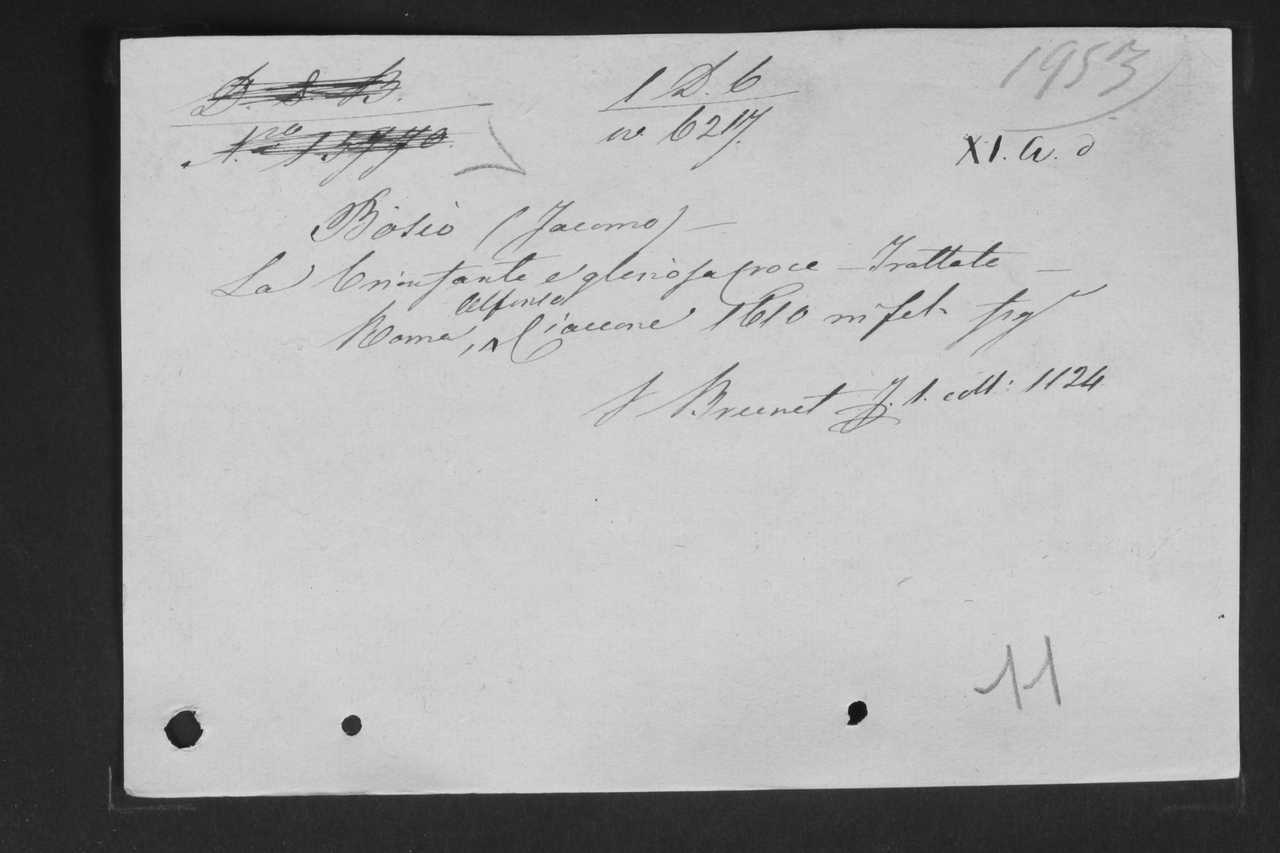 D. S. B.
1 D. 6
1953
N.ro 15770.
no 6217.
XI. a. d
Bosio (Jacomo) —
La Trionfante e gloriosa croce — Trattato —
Alfonso
Roma, Ciaccone 1610 in fol. fig
V Brunet T. 1. coll: 1124
11